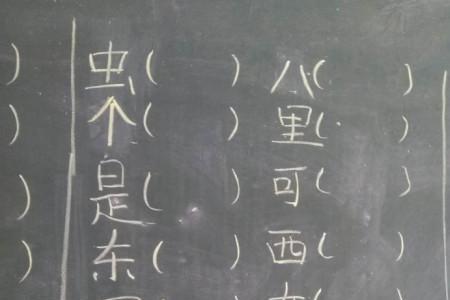 ) 虫( ) 八( )
) 个( ) 里( )
) 是( ) 可( )
) 东( ) 西( )